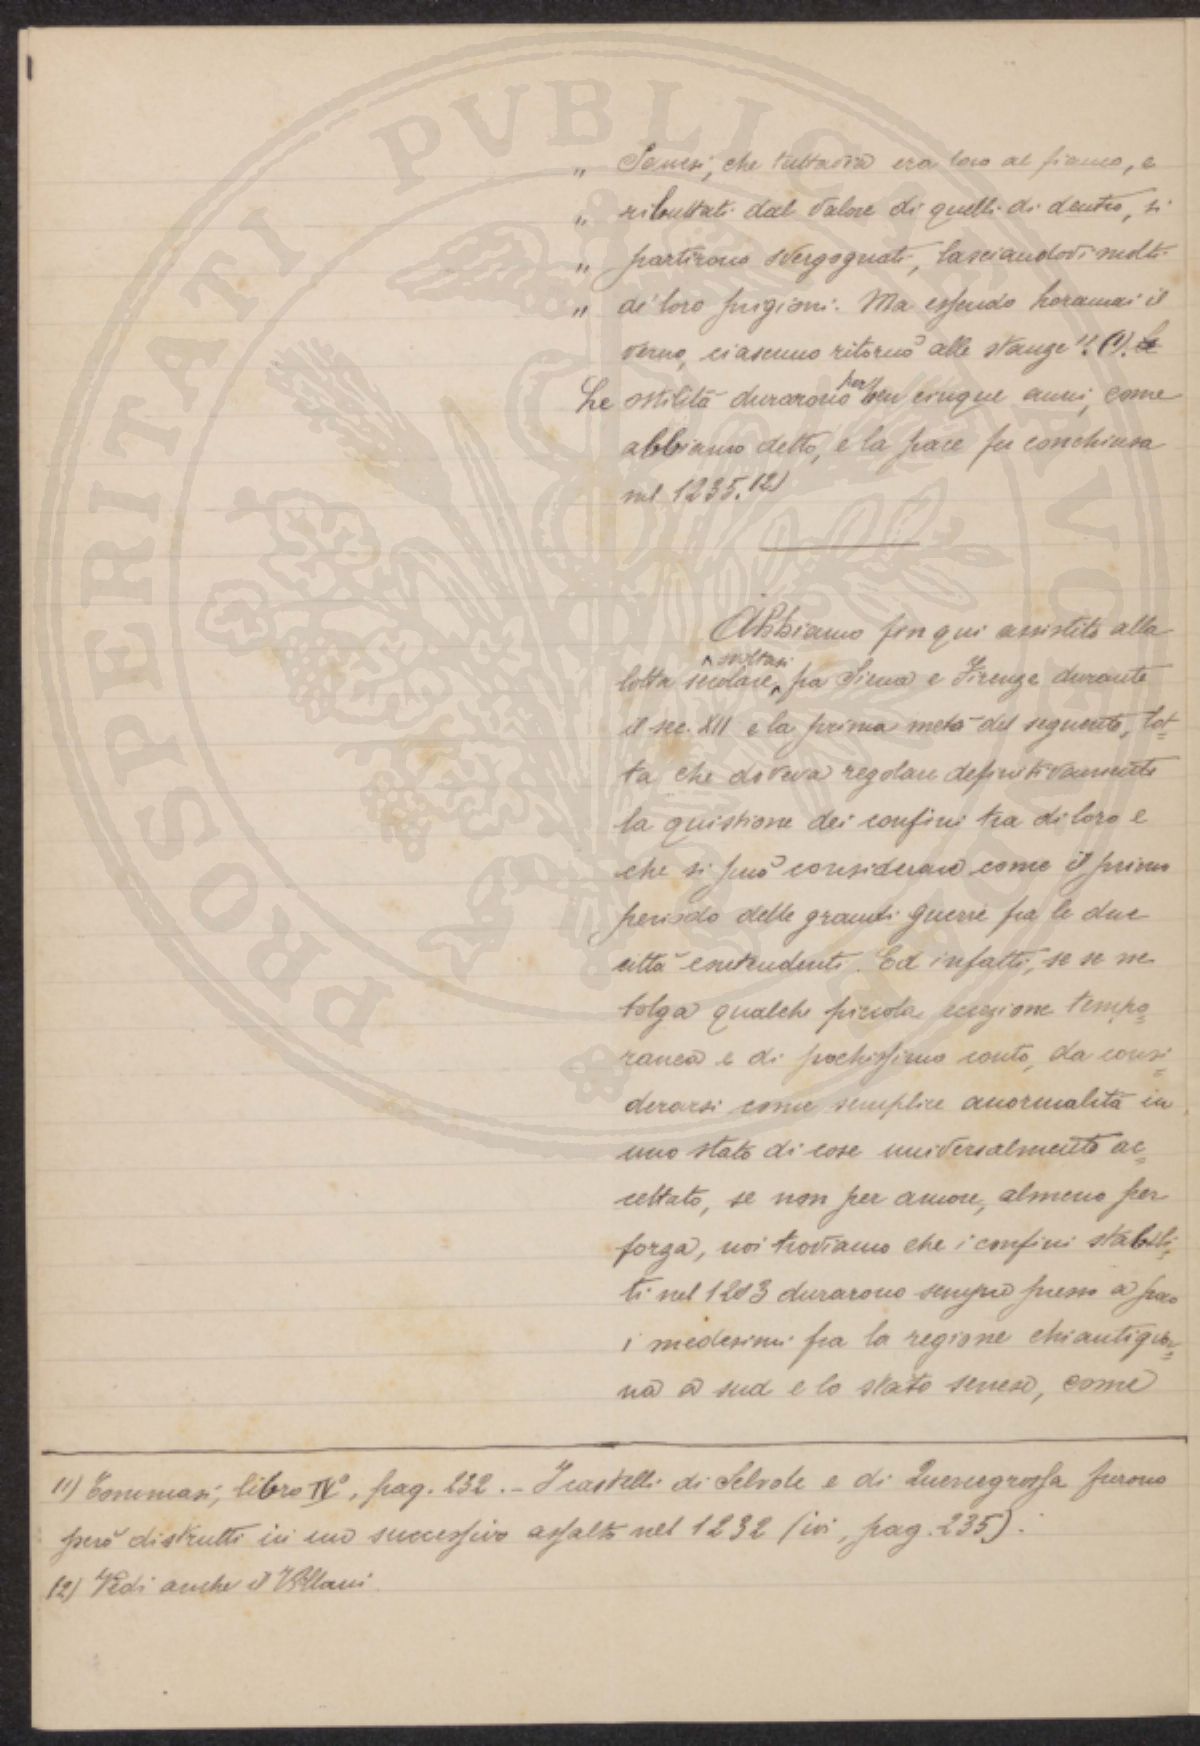 „ Sanesi, che tuttavia era loro al fianco, e
„ ributtati dal valore di quelli di dentro, si
„ partirono svergognati, lasciandovi molti
„ di loro prigioni. Ma essendo horamai il
verno, ciascuno ritornò alle stanze". (1). Le
Le ostilità durarono per ben cinque anni, come
abbiamo detto, e la pace fu conchiusa
nel 1235. (2)
Abbiamo fin qui assistito alla
lotta secolare, svoltasi fra Siena e Firenze durante
il sec. XII e la prima metà del seguente, lot=
ta che doveva regolare definitivamente
la quistione dei confini tra di loro e
che si può considerare come il primo
periodo delle grandi guerre fra le due
città contendenti. Ed infatti, se se ne
tolga qualche piccola eccezione tempo=
ranea e di pochissimo conto, da consi=
derarsi come semplice anormalità in
uno stato di cose universalmente ac=
cettato, se non per amore, almeno per
forza, noi troviamo che i confini stabili=
ti nel 1203 durarono sempre presso a poco
i medesimi fra la regione chiantigia=
na a sud e lo stato senese, come
(1) Tommasi, libro IV°, pag. 232. – I castelli di Selvole e di Quercegrossa furono
però distrutti in un successivo assalto nel 1232 (ivi, pag. 235).
(2) Vedi anche il Villani.
PROSPERITATI PVBLICAE AVGENDAE